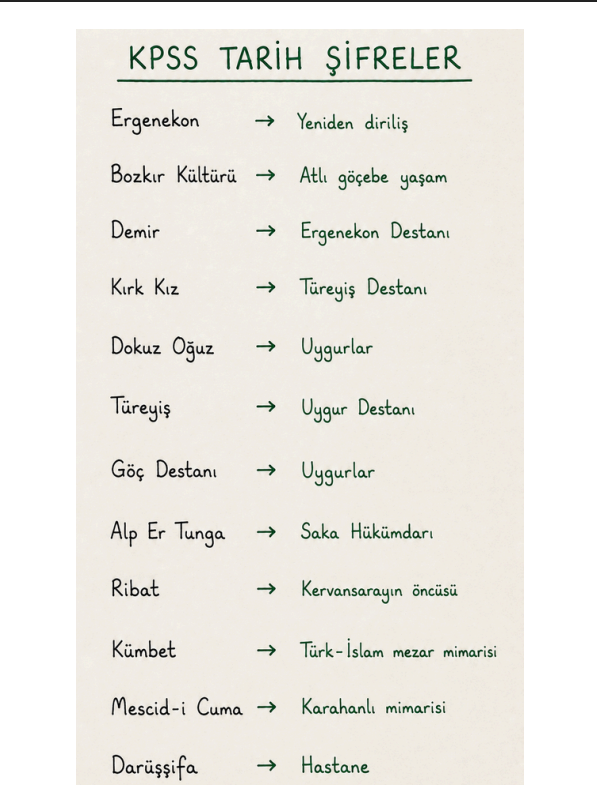 KPSS TARİH ŞİFRELER
Ergenekon → Yeniden diriliş
Bozkır Kültürü → Atlı göçebe yaşam
Demir → Ergenekon Destanı
Kırk Kız → Türeyiş Destanı
Dokuz Oğuz → Uygurlar
Türeyiş → Uygur Destanı
Göç Destanı → Uygurlar
Alp Er Tunga → Saka Hükümdarı
Ribat → Kervansarayın öncüsü
Kümbet → Türk-İslam mezar mimarisi
Mescid-i Cuma → Karahanlı mimarisi
Darüşşifa → Hastane